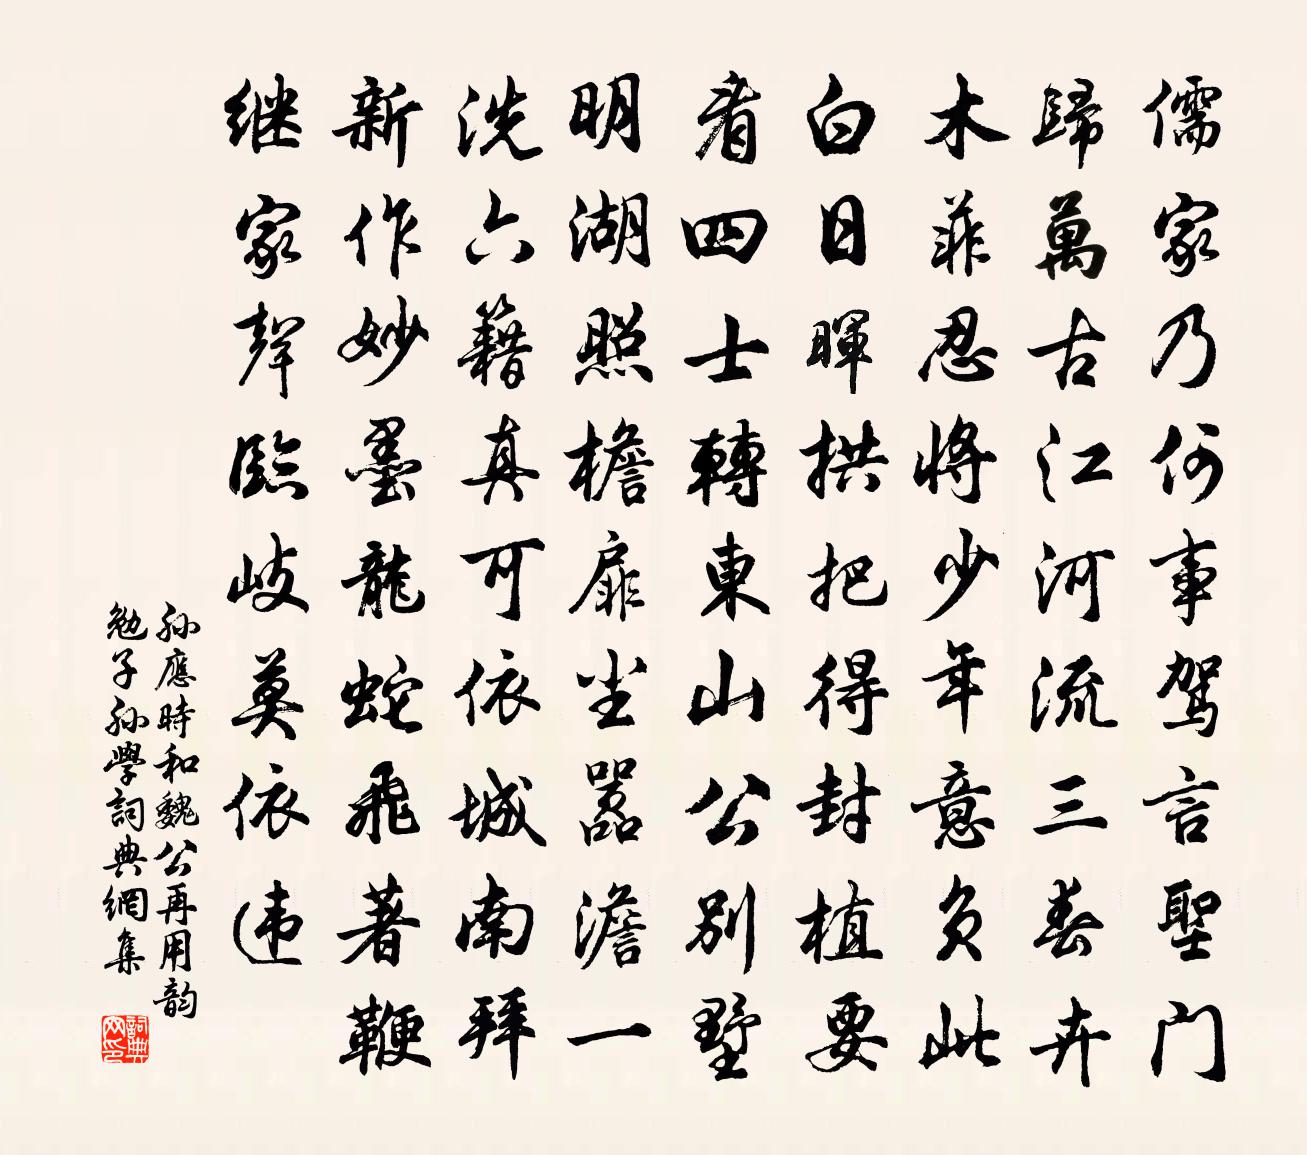 儒家乃何事駕言聖门
歸萬古江河流三春卉
木菲忍將少年意負此
白日暉拱把得封植要
看四士轉東山公別墅
明湖照檐扉坐嚣澹一
洗六籍真可依城南拜
新作妙墨龍蛇飛著鞭
继家聲臨岐莫依违
孙應時和魏公再用韵
勉子孙學詞典網集
詞典网印